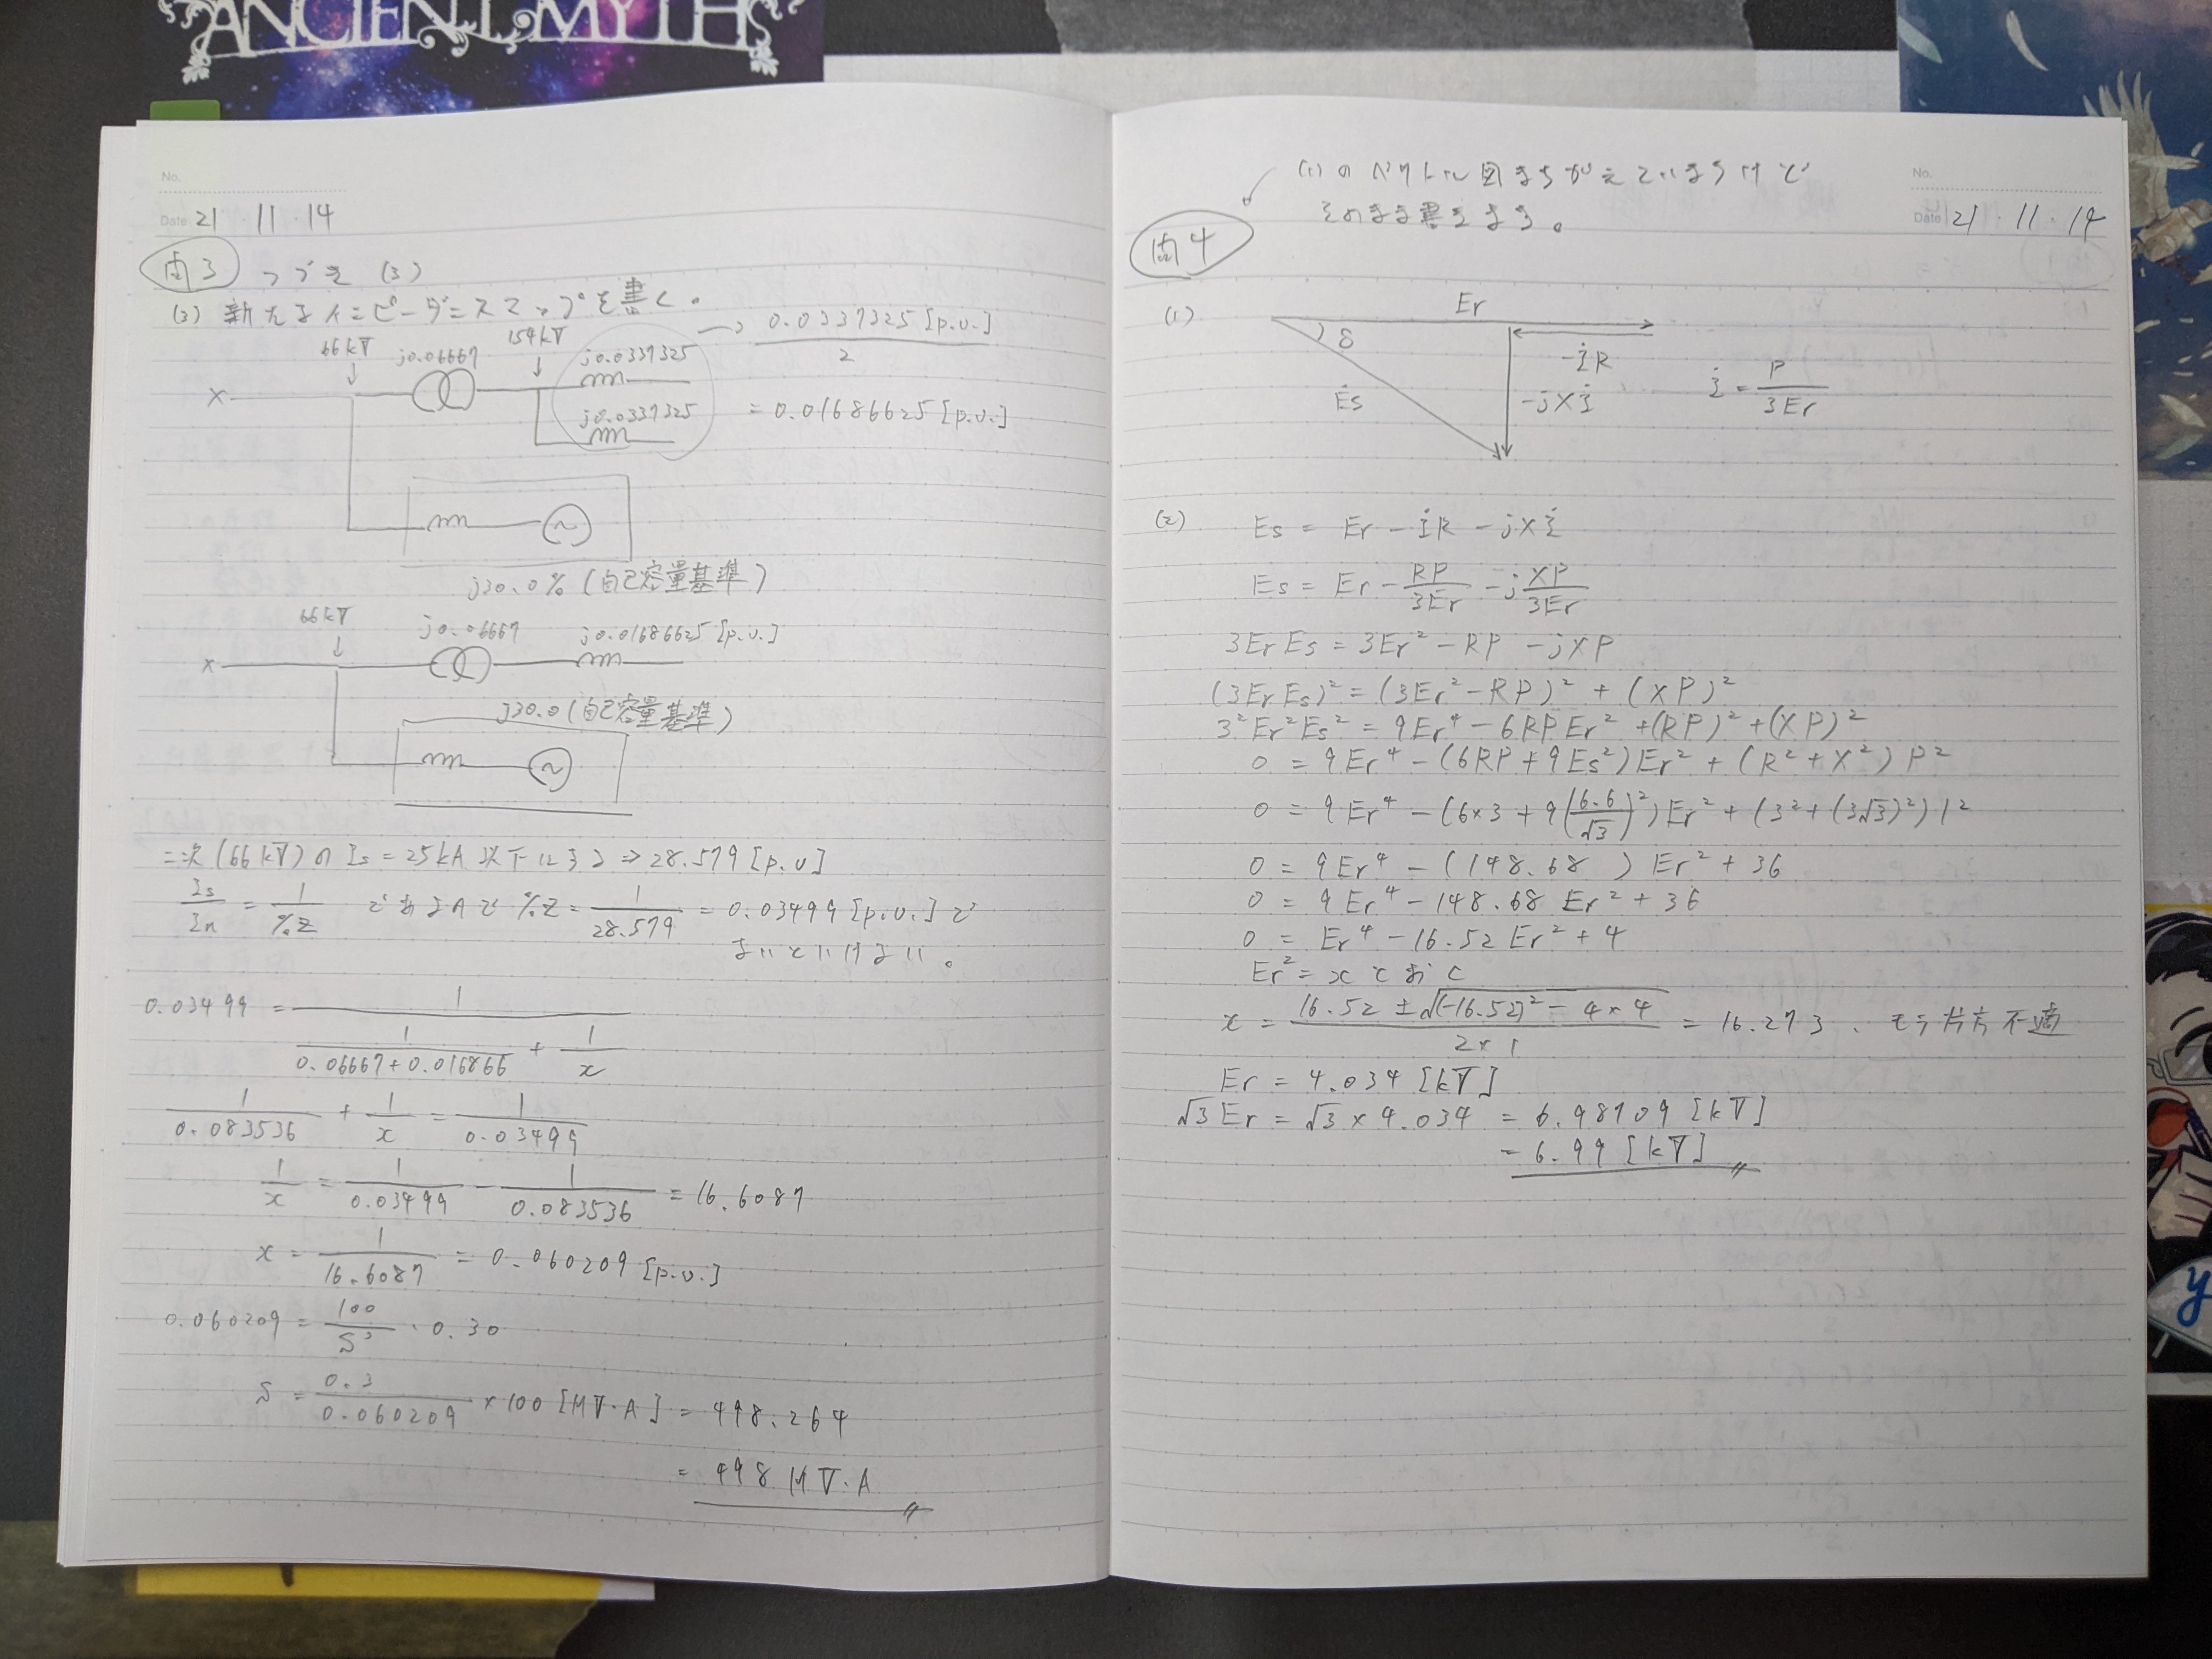 ANCIENT MYTH
No.
Date 21 ・ 11 ・ 14
問3 つづき (3)
(3) 新たなインピーダンスマップを書く。
66kV j0.06667 154kV j0.0337325 → 0.0337325 [p.u.] / 2
× j0.0337325 = 0.01686625 [p.u.]
j30.0% (自己容量基準)
66kV j0.06667 j0.01686625 [p.u.]
×
j30.0 (自己容量基準)
二次 (66kV) の Is = 25kA 以下にする ⇒ 28.579 [p.u]
Is/In = 1/%Z であるので %Z = 1/28.579 = 0.03499 [p.u.] で
ないといけない。
0.03499 = 1/(1/(0.06667+0.016866) + 1/x)
1/0.083536 + 1/x = 1/0.03499
1/x = 1/0.03499 - 1/0.083536 = 16.6087
x = 1/16.6087 = 0.060209 [p.u.]
0.060209 = 100/S · 0.30
S = 0.3/0.060209 × 100 [MV·A] = 498.264
= 498 MV·A
(1)のベクトル図まちがえていますけど
そのまま書きます。
No.
Date 21 ・ 11 ・ 14
問4
(1) Er
δ
-İR
Ės -jXİ İ = P/3Er
(2) Es = Er - İR - jXİ
Es = Er - RP/3Er - j XP/3Er
3ErEs = 3Er² - RP - jXP
(3ErEs)² = (3Er² - RP)² + (XP)²
3²Er²Es² = 9Er⁴ - 6RPEr² + (RP)² + (XP)²
0 = 9Er⁴ - (6RP + 9Es²)Er² + (R² + X²)P²
0 = 9Er⁴ - (6×3 + 9(6.6/√3)²)Er² + (3² + (3√3)²)1²
0 = 9Er⁴ - (148.68)Er² + 36
0 = 9Er⁴ - 148.68Er² + 36
0 = Er⁴ - 16.52Er² + 4
Er² = x とおく
x = (16.52 ± √((-16.52)² - 4×4))/(2×1) = 16.273、もう片方不適
Er = 4.034 [kV]
√3Er = √3 × 4.034 = 6.98709 [kV]
= 6.99 [kV]
y